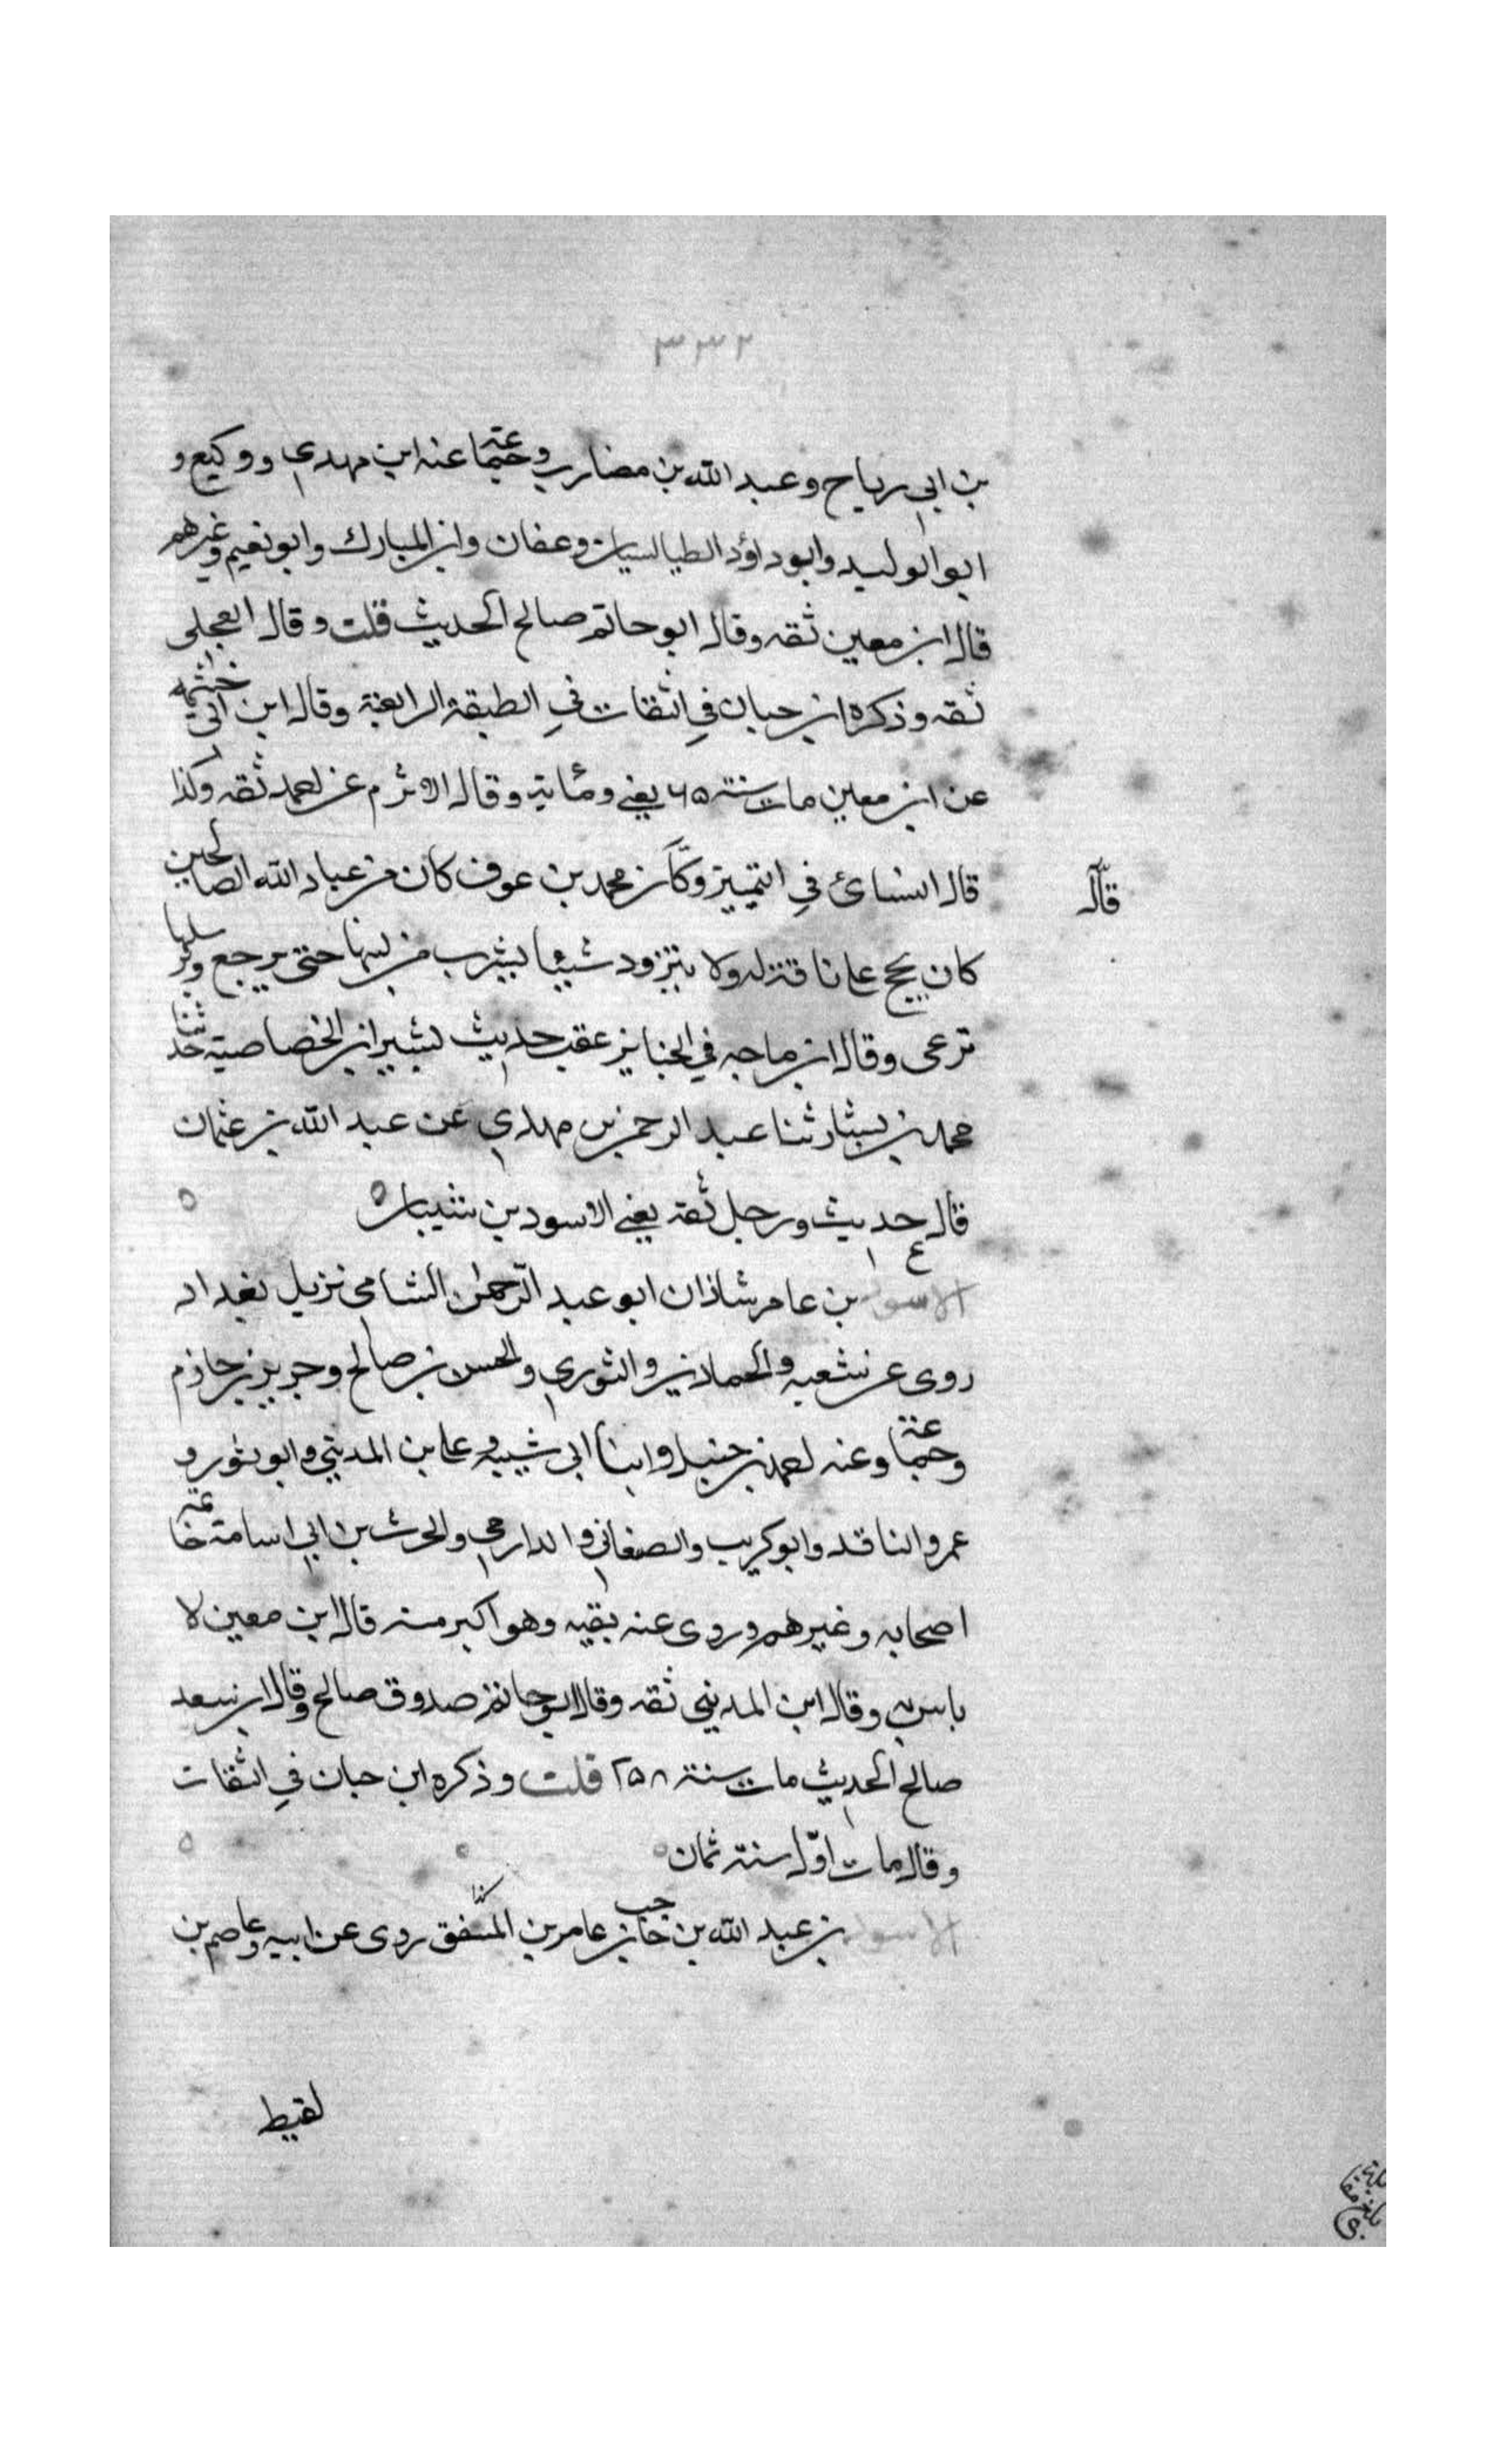 ٣٣٢
بن ابي رياح وعبد الله بن مضارب وجماعة عنه ابن مهدي ووكيع و
ابو الوليد وابو داؤد الطيالسيان وعفان وابن المبارك وابو نعيم وغيرهم
قال ابن معين ثقه وقال ابو حاتم صالح الحديث قلت وقال العجلي
ثقه وذكره ابن حبان في الثقات في الطبقة الرابعة وقال ابن ابي خيثمه
عن ابن معين مات سنة ٦٥ يعني ومائة وقال الاثرم عن احمد ثقه وكذا
قال النسائ في التمييز وكان محمد بن عوف كان من عباد الله الصالحين
قال
كان يحج على ناقة له ولا يتزود شيئا يشرب من لبنها حتى يرجع ويرسلها
ترعى وقال ابن ماجه في الجنايز عقب حديث بشير ابن الخصاصية حدثنا
محمد بن بشار ثنا عبد الرحمن بن مهدي عن عبد الله بن عثمان
قال حديث ورجل ثقة يعني الاسود بن شيبان
الاسود بن عامر شاذان ابو عبد الرحمٰن الشامي نزيل بغداد
روى عن شعبه والحمادين والثوري والحسن بن صالح وجرير بن حازم
وجماعة وعنه احمد بن حنبل وابنا ابي شيبه وعلي بن المديني وابو ثور و
عمرو الناقد وابو كريب والصغاني والدارمي والحرث بن ابي اسامة خاتمة
اصحابه وغيرهم وروى عنه بقيه وهو اكبر منه قال ابن معين لا
باس به وقال ابن المديني ثقه وقال ابو حاتم صدوق صالح وقال ابن سعد
صالح الحديث مات سنة ٢٥٨ قلت وذكره ابن حبان في الثقات
وقال مات اوّل سنة ثمان
الاسود بن عبد الله بن حاجب بن عامر بن المنتفق روى عن ابيه وعاصم بن
لقيط